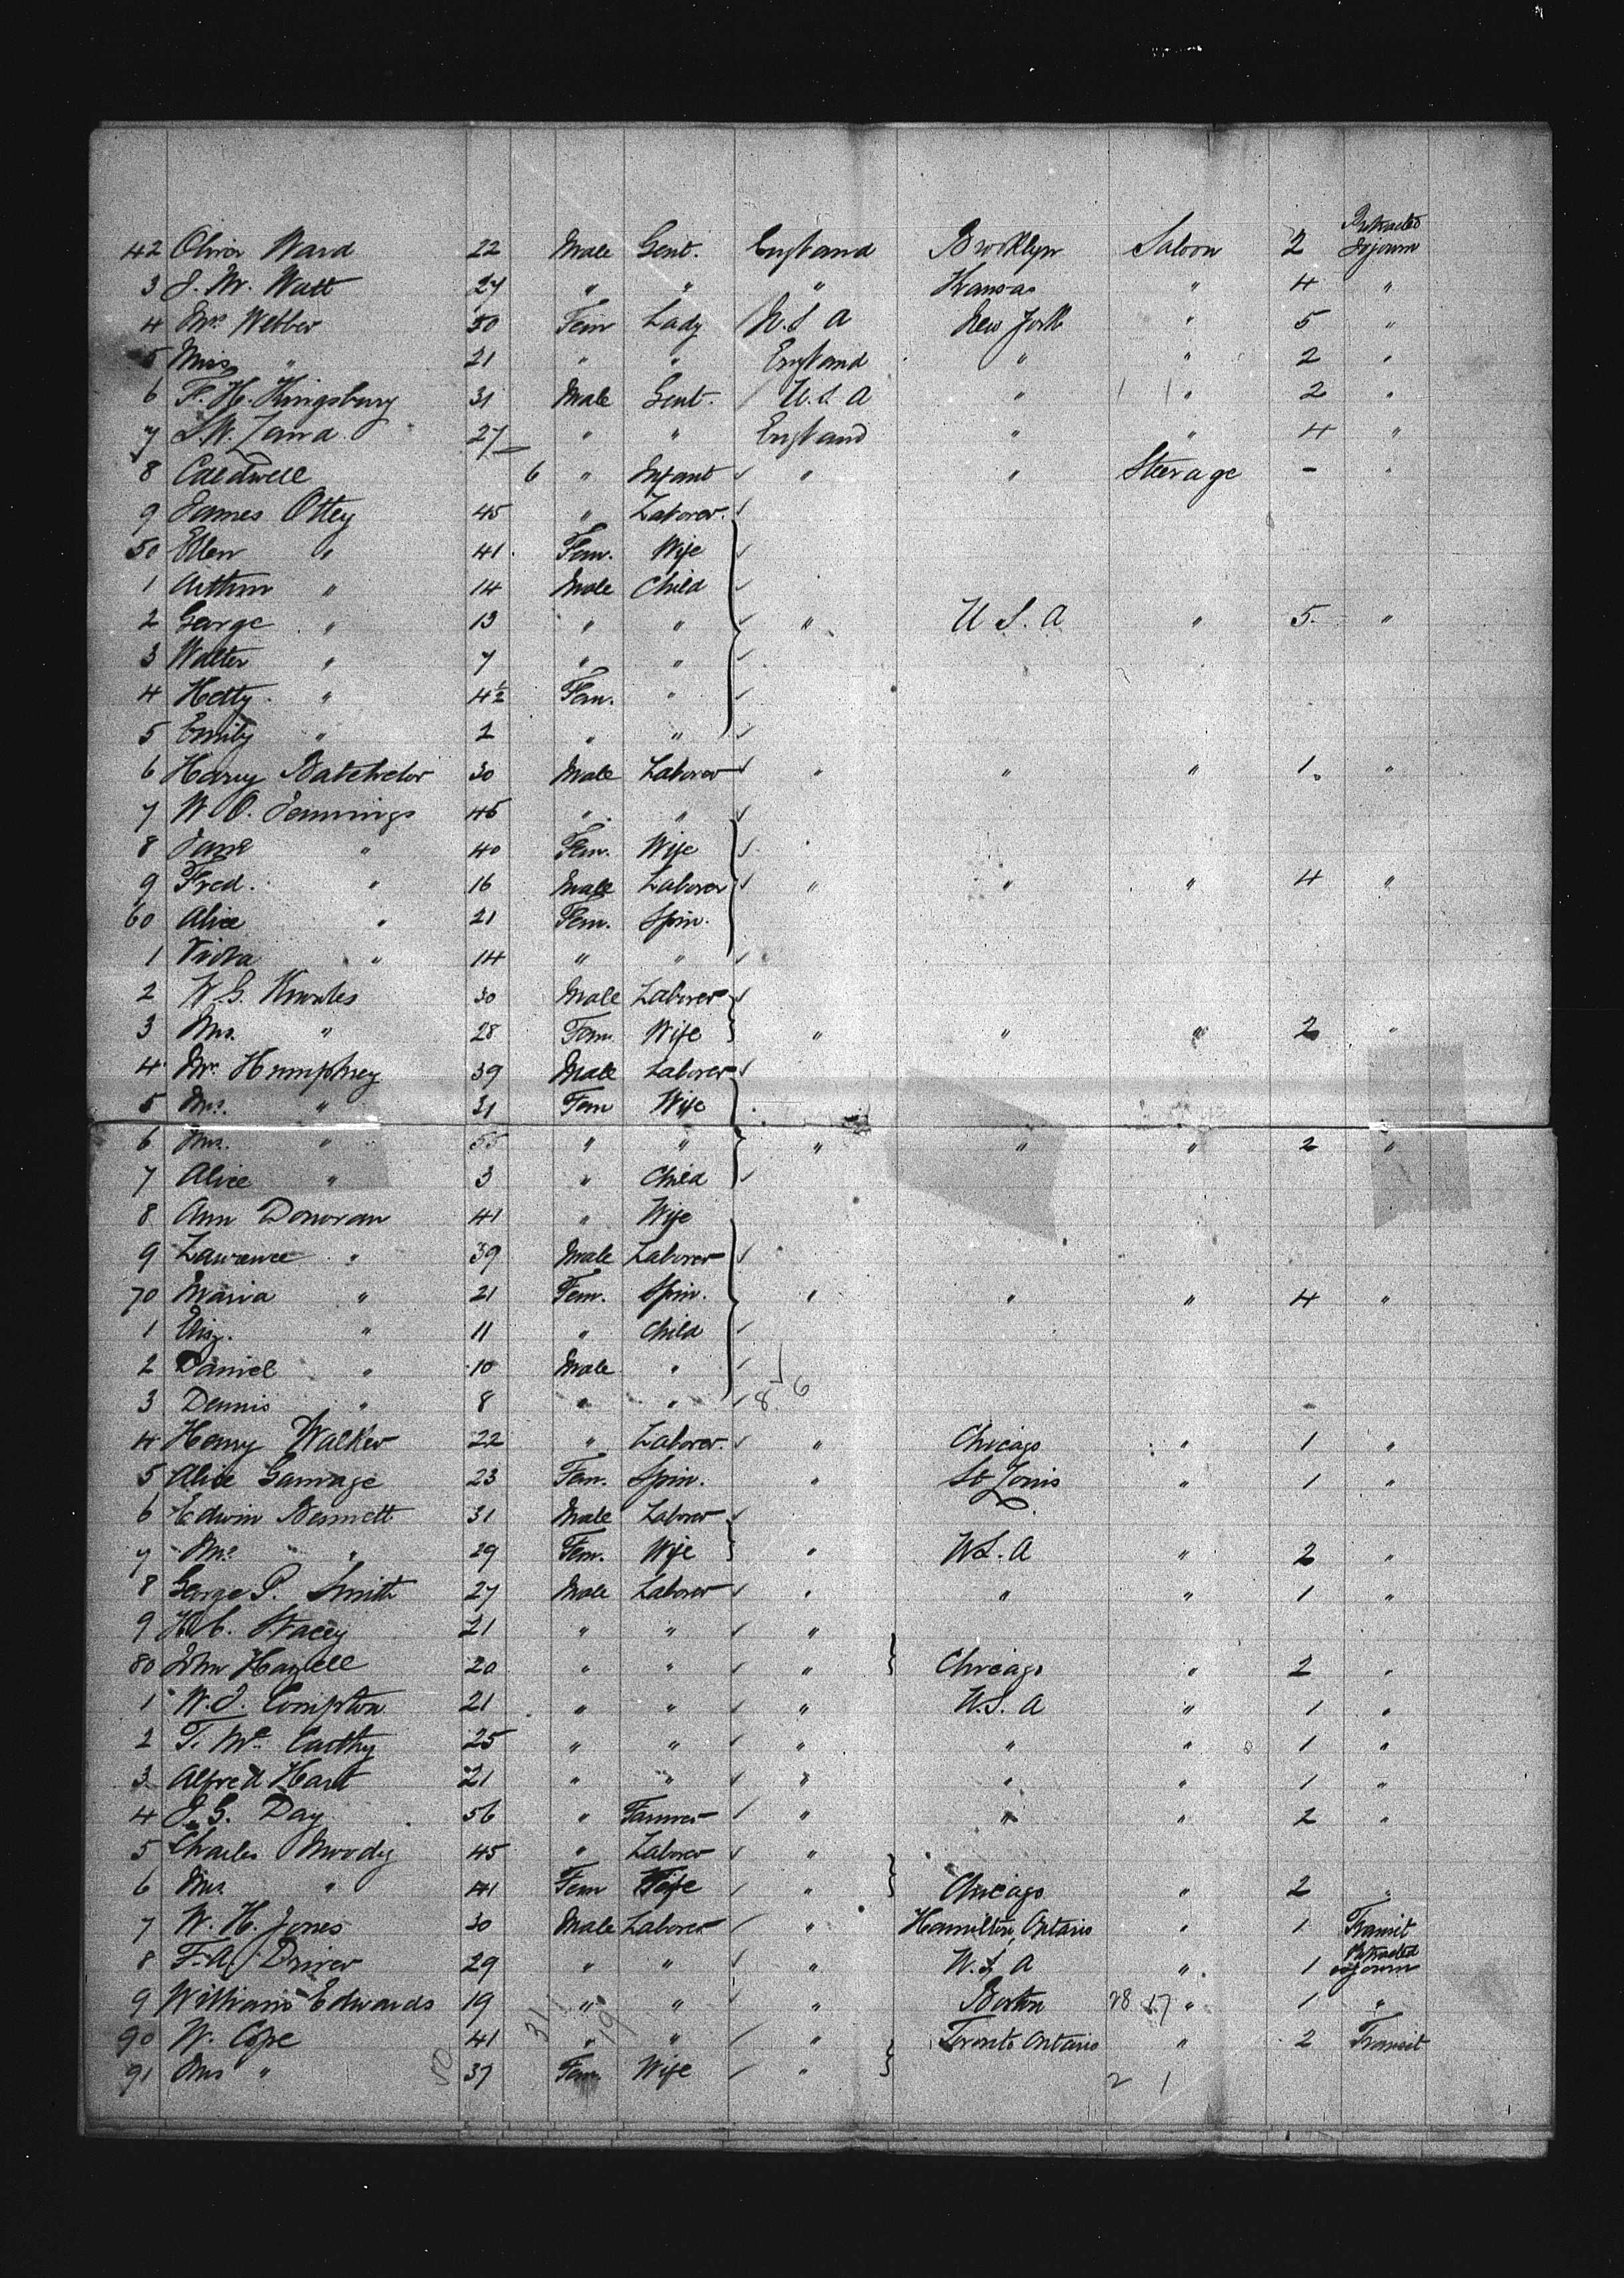 42 Oliver Ward 22 Male Gent. England Brooklyn Saloon 2 Protracted Sojourn
3 J. W. Watt 24 " " " Kansas " 4 "
4 Mrs Webber 50 Fem Lady U.S.A New York " 5 "
5 Miss " 21 " " England " " 2 "
6 F. H. Kingsbury 31 Male Gent. U.S.A " " 2 "
7 S.W. 27 " " England " " 4 "
8 Caldwell 6 " Infant " " Steerage - "
9 James Ottey 45 " Laborer.
50 Ellen " 41 Fem. Wife
1 Arthur " 14 Male Child
2 George " 13 " " " U.S.A. " 5. "
3 Walter " 7 " "
4 Hetty " 4½ Fem. "
5 Emily " 2 " "
6 Harry Batchelor 30 Male Laborer " " " 1 "
7 W. O. Jennings 45 " "
8 Jane " 40 Fem. Wife
9 Fred. " 16 Male Laborer " " " 4 "
60 Alice " 21 Fem. Spin.
1 " 14 " "
2 W.G. Knowles 30 Male Laborer
3 Mrs. " 28 Fem. Wife " " " 2 "
4 Mr. Humphrey 39 Male Laborer
5 Mrs. " 31 Fem Wife
6 Mrs. " 55 " " " " " 2 "
7 Alice " 3 " Child
8 Ann Donovan 41 " Wife
9 Lawrence " 39 Male Laborer
70 Maria " 21 Fem. Spin. " " " 4 "
1 Eliz. " 11 " Child
2 Daniel " 10 Male "
3 Dennis " 8 " " 8 6
4 Henry Walker 22 " Laborer. " Chicago " 1 "
5 Alice Gamage 23 Fem. Spin. " St Louis " 1 "
6 Edwin Bennett 31 Male Laborer
7 Mrs " 29 Fem. Wife " U.S.A " 2 "
8 George P. Smith 27 Male Laborer " " " 1 "
9 H.C. Stacey 21 " " "
80 John Hazell 20 " " " Chicago " 2 "
1 W.J. Compton 21 " " " U.S.A " 1 "
2 T. Mc Carthy 25 " " " " " 1 "
3 Alfred Hart 21 " " " " " 1 "
4 J.G. Day 56 " Farmer " " " 2 "
5 Charles Moody 45 " Laborer "
6 Mrs. " 41 Fem Wife " Chicago " 2 "
7 W. H. Jones 30 Male Laborer " Hamilton, Ontario " 1 Transit
8 F. A. Driver 29 " " " U.S.A " 1 Protracted sojourn
9 William Edwards 19 " " " Boston 28 17 " 1 "
90 W. Cope 41 " " " Toronto Ontario " 2 Transit
91 Mrs " 37 Fem. Wife " 2 1
50 31 19